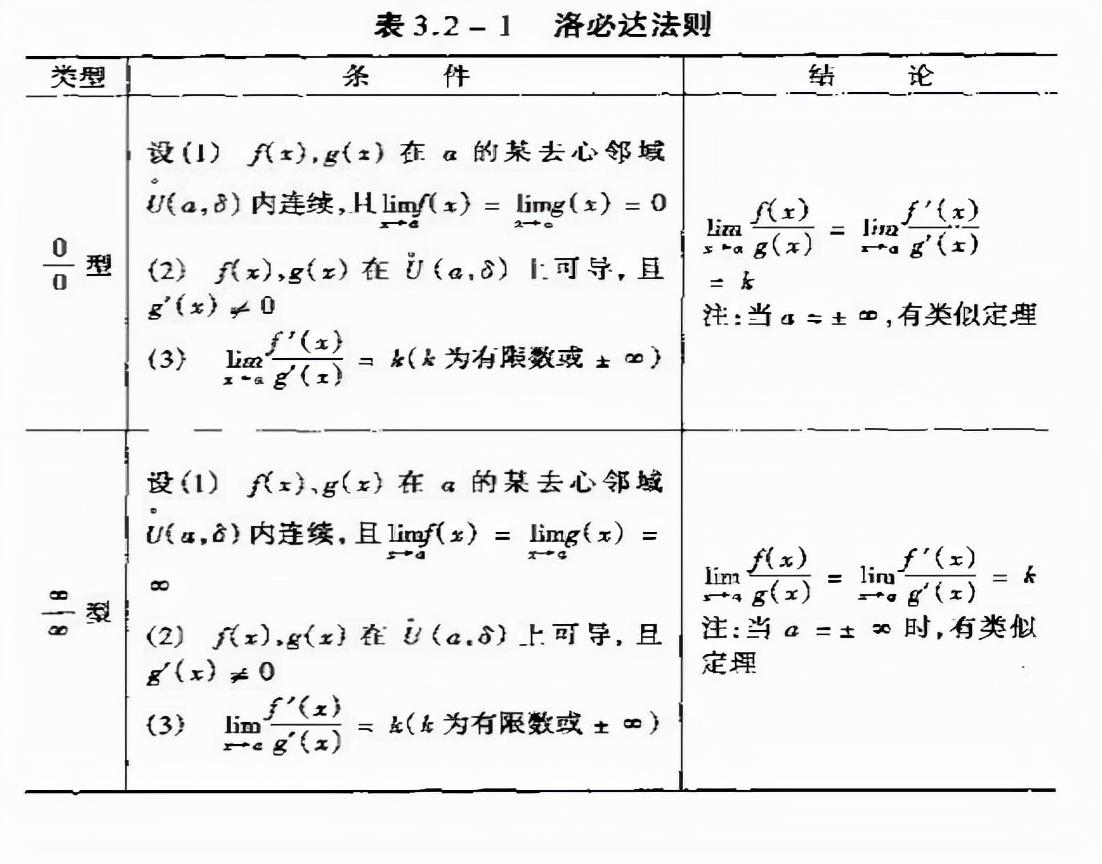 表 3.2 - 1 洛必达法则
类型 条 件 结 论
0/0 型
设(1) f(x),g(x) 在 a 的某去心邻域
Ů(a,δ) 内连续,且 lim_{x→a} f(x) = lim_{x→a} g(x) = 0
(2) f(x),g(x) 在 Ů(a,δ) 上可导,且
g′(x) ≠ 0
(3) lim_{x→a} f′(x)/g′(x) = k(k 为有限数或 ± ∞)
lim_{x→a} f(x)/g(x) = lim_{x→a} f′(x)/g′(x)
= k
注:当 a = ± ∞,有类似定理
∞/∞ 型
设(1) f(x)、g(x) 在 a 的某去心邻域
Ů(a,δ) 内连续,且 lim_{x→a} f(x) = lim_{x→a} g(x) =
∞
(2) f(x),g(x) 在 Ů(a,δ) 上可导,且
g′(x) ≠ 0
(3) lim_{x→a} f′(x)/g′(x) = k(k 为有限数或 ± ∞)
lim_{x→a} f(x)/g(x) = lim_{x→a} f′(x)/g′(x) = k
注:当 a = ± ∞ 时,有类似
定理